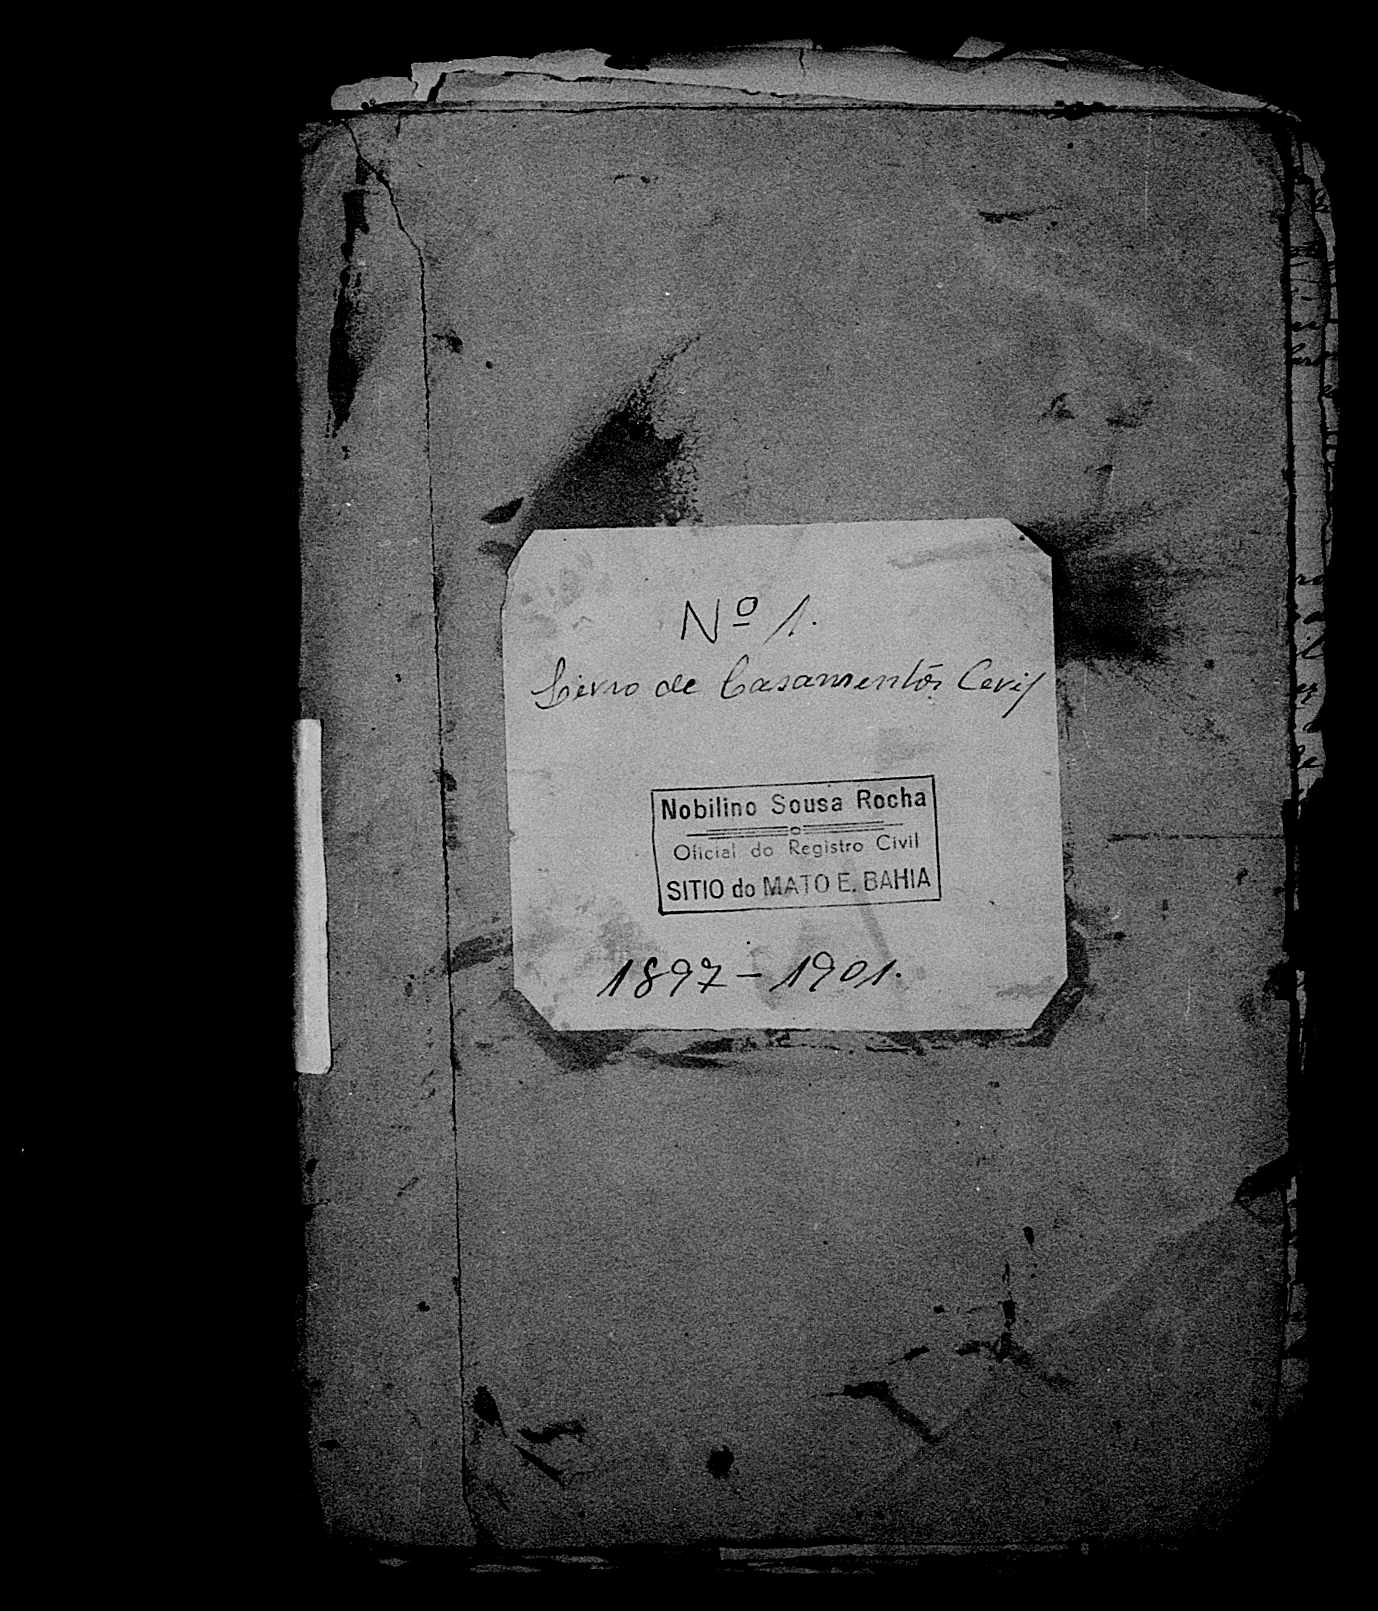 Nº 1.
Livro de Casamentos Cevil
Nobilino Sousa Rocha
Oficial do Registro Civil
SITIO do MATO E. BAHIA
1897 - 1901.